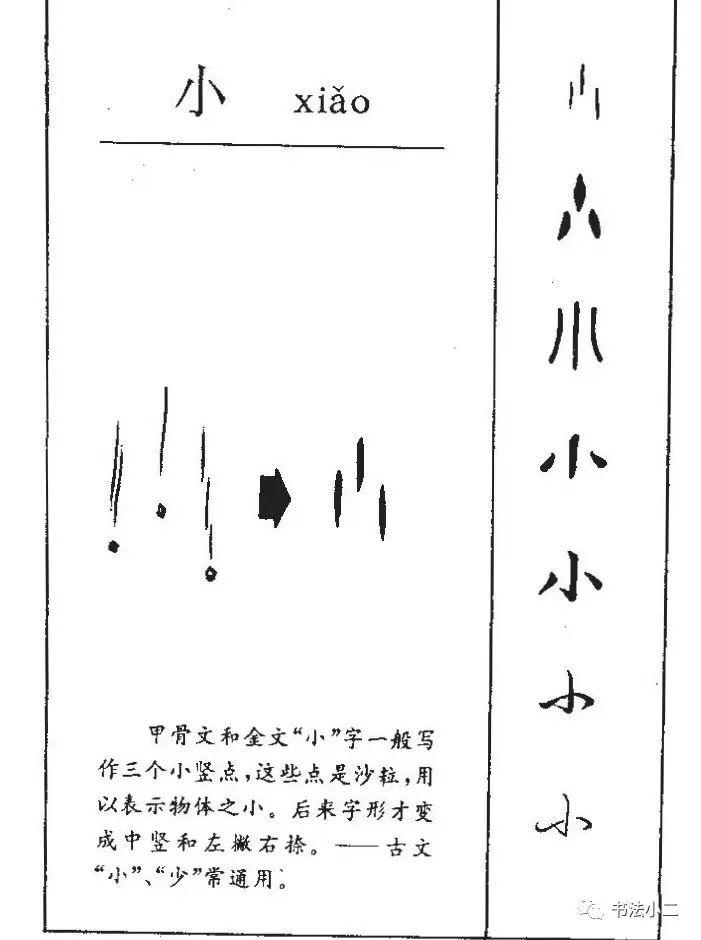 小 xiǎo
甲骨文和金文“小”字一般写
作三个小竖点，这些点是沙粒，用
以表示物体之小。后来字形才变
成中竖和左撇右捺。——古文
“小”、“少”常通用。
小
小
小
小
小
小
小
书法小二